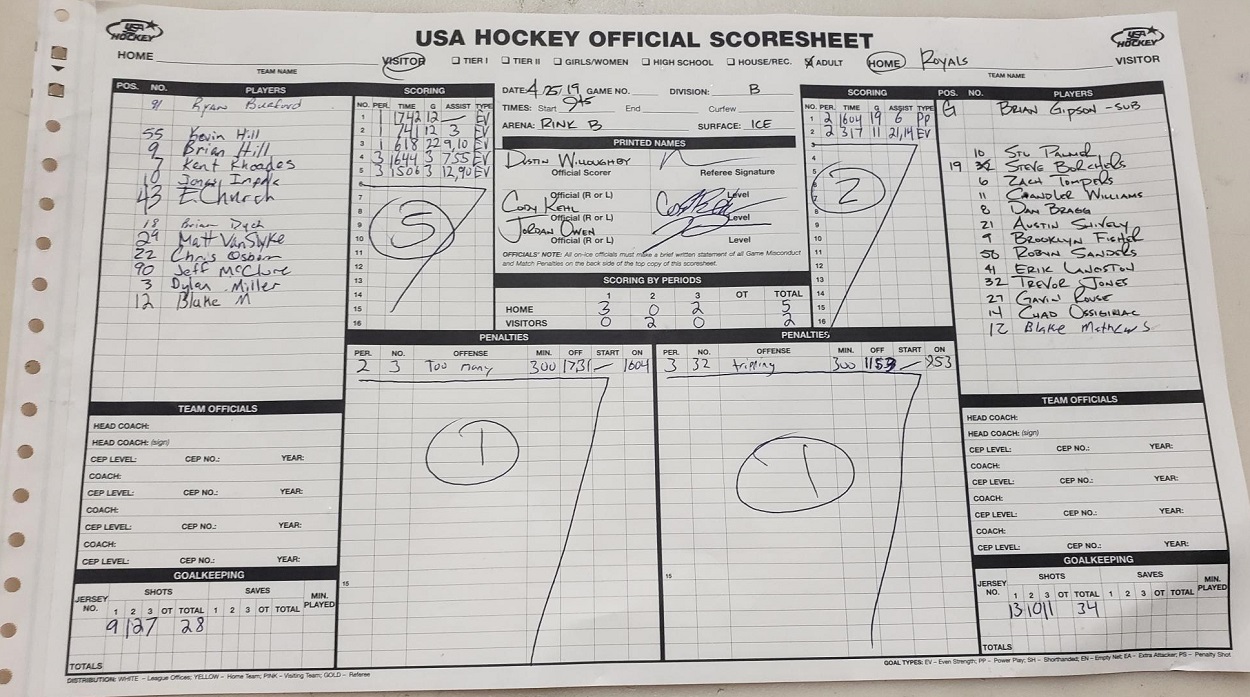 USA HOCKEY OFFICIAL SCORESHEET
USA HOCKEY
USA HOCKEY
HOME
TEAM NAME
VISITOR
TIER I TIER II GIRLS/WOMEN HIGH SCHOOL HOUSE/REC. ADULT
HOME Royals
VISITOR
TEAM NAME
POS. NO. PLAYERS
91 Ryan Bueford
55 Kevin Hill
9 Brian Hill
7 Kent Rhoades
10
43 E. Church
18 Brian Dych
29 Matt VanSlyke
22 Chris Osborn
90 Jeff McClure
3 Dylan Miller
12 Blake M
SCORING
NO. PER. TIME G ASSIST TYPE
1 1 1742 12 — EV
2 1 741 12 3 EV
3 1 618 22 9,10 EV
4 3 1644 3 7,55 EV
5 3 1506 3 12,90 EV
6
7
8
9
10
11
12
13
14
15
16
5
DATE: 4/25/19 GAME NO. DIVISION: B
TIMES: Start 945 End Curfew
ARENA: RINK B SURFACE: ICE
PRINTED NAMES
DUSTIN WILLOUGHBY
Official Scorer Referee Signature
Official (R or L) Level
CODY KEHL
Official (R or L) Level
JORDAN OWEN
Official (R or L) Level
OFFICIALS' NOTE: All on-ice officials must make a brief written statement of all Game Misconduct
and Match Penalties on the back side of the top copy of this scoresheet.
SCORING BY PERIODS
1 2 3 OT TOTAL
HOME 3 0 2 5
VISITORS 0 2 0 2
SCORING
NO. PER. TIME G ASSIST TYPE
1 2 1604 19 6 PP
2 2 317 11 21,14 EV
3
4
5
6
7
8
9
10
11
12
13
14
15
16
2
POS. NO. PLAYERS
G BRIAN GIPSON - SUB
10 STU PALMER
19 STEVE BORCHELS
6 ZACH TOMPERS
11 CHANDLER WILLIAMS
8 DAN BRAGG
21 AUSTIN SHIVELY
9 BROOKLYN FISHER
50 ROBYN SANDERS
41 ERIK LANGSTON
32 TREVOR JONES
27 GAVIN ROUSE
14 CHAD
12 Blake Mathews
PENALTIES
PER. NO. OFFENSE MIN. OFF START ON
2 3 Too many 300 1731 — 1604
1
15
PENALTIES
PER. NO. OFFENSE MIN. OFF START ON
3 32 tripping 300 1153 — 853
1
15
TEAM OFFICIALS
HEAD COACH:
HEAD COACH: (sign)
CEP LEVEL: CEP NO.: YEAR:
COACH:
CEP LEVEL: CEP NO.: YEAR:
COACH:
CEP LEVEL: CEP NO.: YEAR:
COACH:
CEP LEVEL: CEP NO.: YEAR:
GOALKEEPING
JERSEY NO. SHOTS SAVES MIN. PLAYED
1 2 3 OT TOTAL 1 2 3 OT TOTAL
9 12 7 28
TOTALS
TEAM OFFICIALS
HEAD COACH:
HEAD COACH: (sign)
CEP LEVEL: CEP NO.: YEAR:
COACH:
CEP LEVEL: CEP NO.: YEAR:
COACH:
CEP LEVEL: CEP NO.: YEAR:
COACH:
CEP LEVEL: CEP NO.: YEAR:
GOALKEEPING
JERSEY NO. SHOTS SAVES MIN. PLAYED
1 2 3 OT TOTAL 1 2 3 OT TOTAL
13 10 11 34
TOTALS
DISTRIBUTION: WHITE – League Offices; YELLOW – Home Team; PINK – Visiting Team; GOLD – Referee
GOAL TYPES: EV – Even Strength; PP – Power Play; SH – Shorthanded; EN – Empty Net; EA – Extra Attacker; PS – Penalty Shot